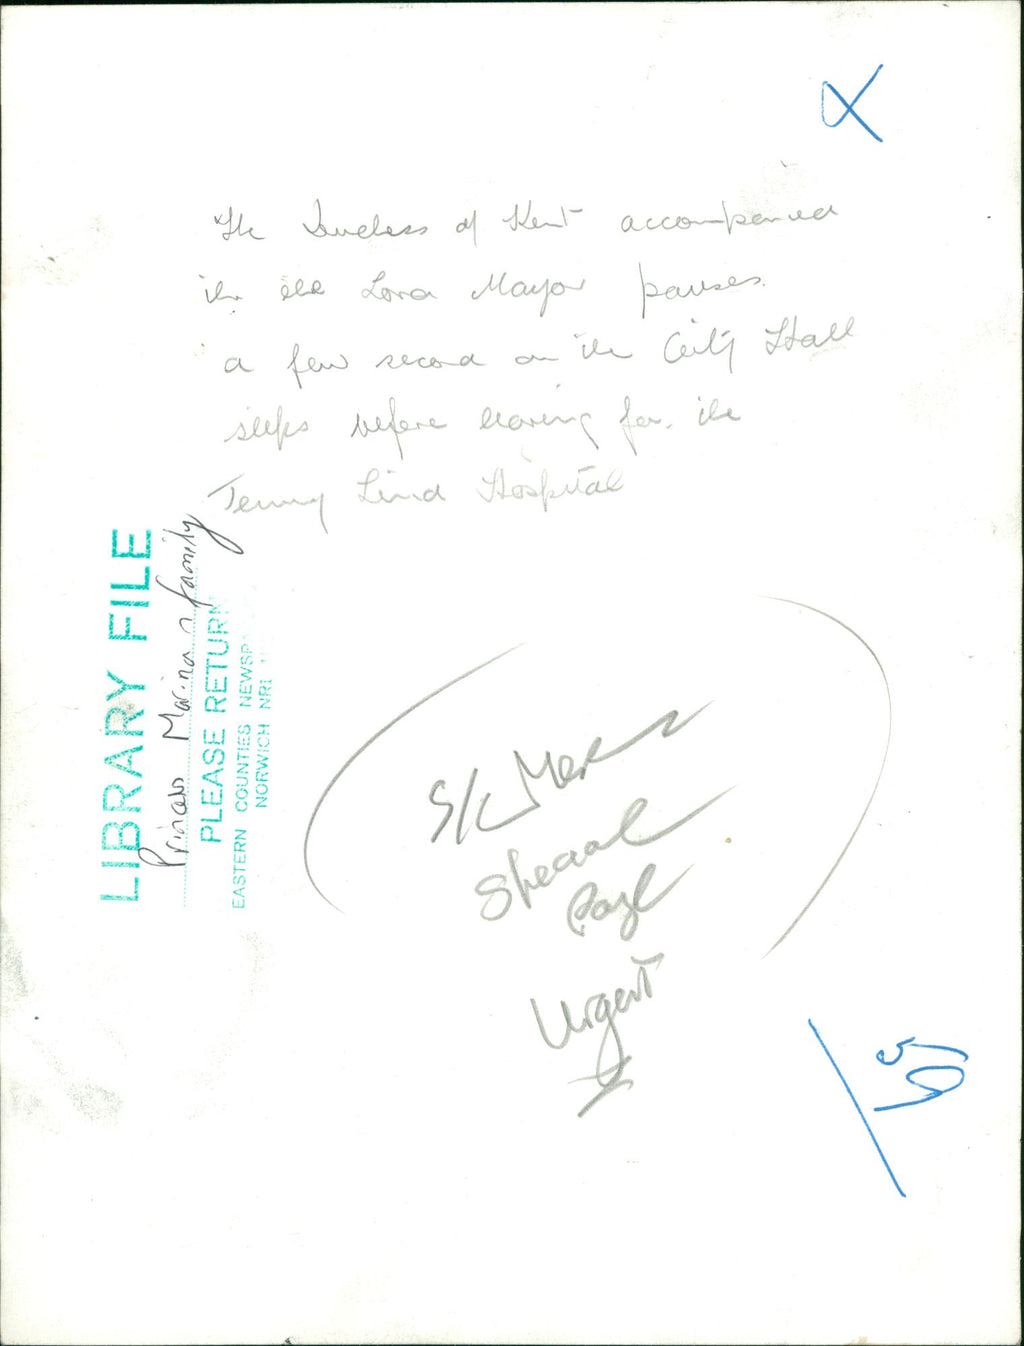 The Duchess of Kent accompanied
the Lord Mayor pauses
a few second on the City Hall
steps before leaving for the
Jenny Lind Hospital
LIBRARY FILE
Princess Marina & family
PLEASE RETURN
EASTERN COUNTIES NEWSP
NORWICH NR1
Special
Page
Urgent